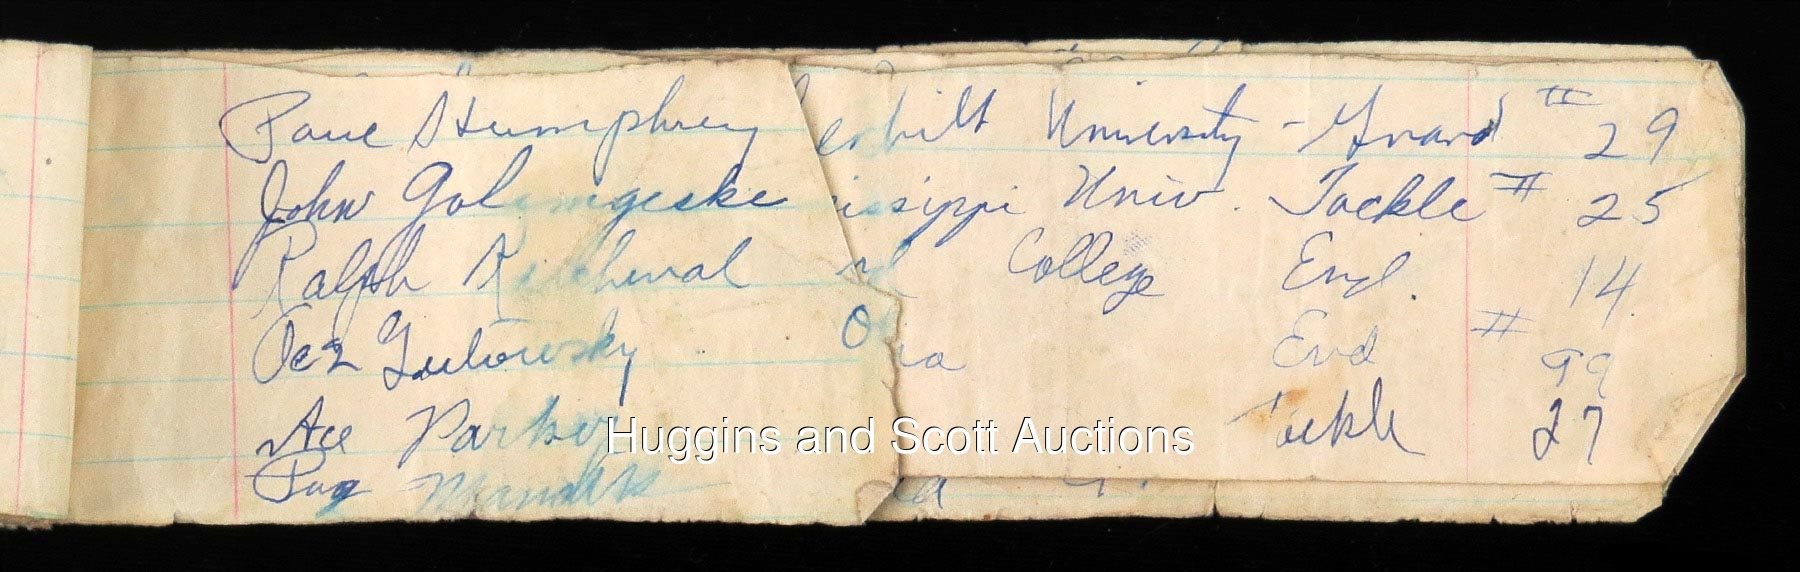 Paul Humphrey erbilt University - Guard # 29
John Golemgeske issippi Univ. Tackle # 25
Ralph Kercheval College End. 14
O End # 99
Ace Parker ackle 27
Pug Manders
Huggins and Scott Auctions